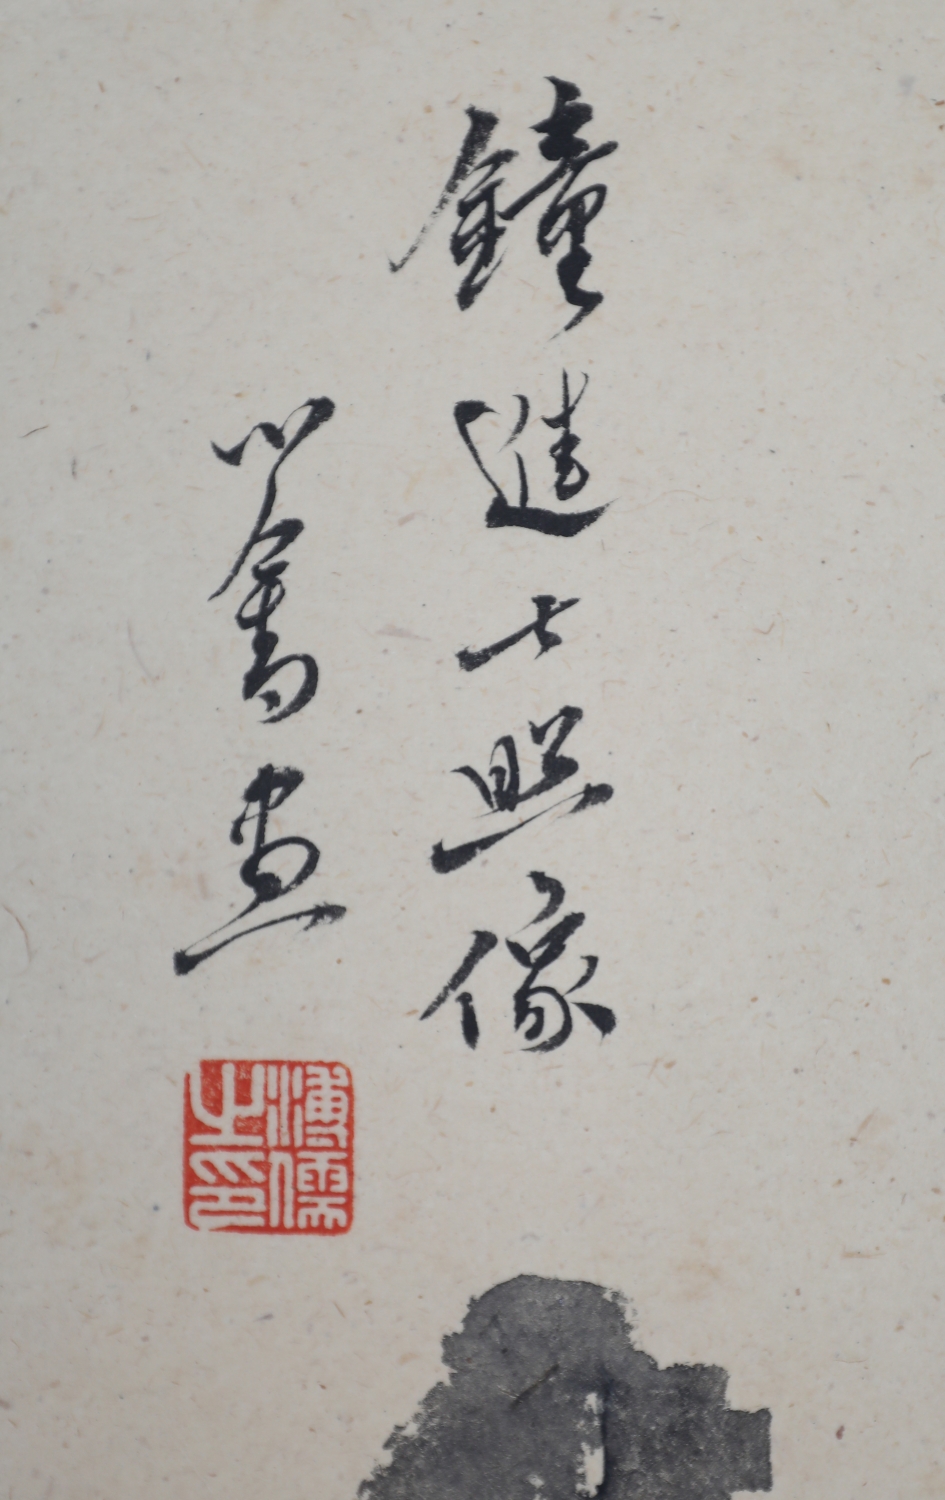 鐘進士照像
心畬畫
溥儒之印